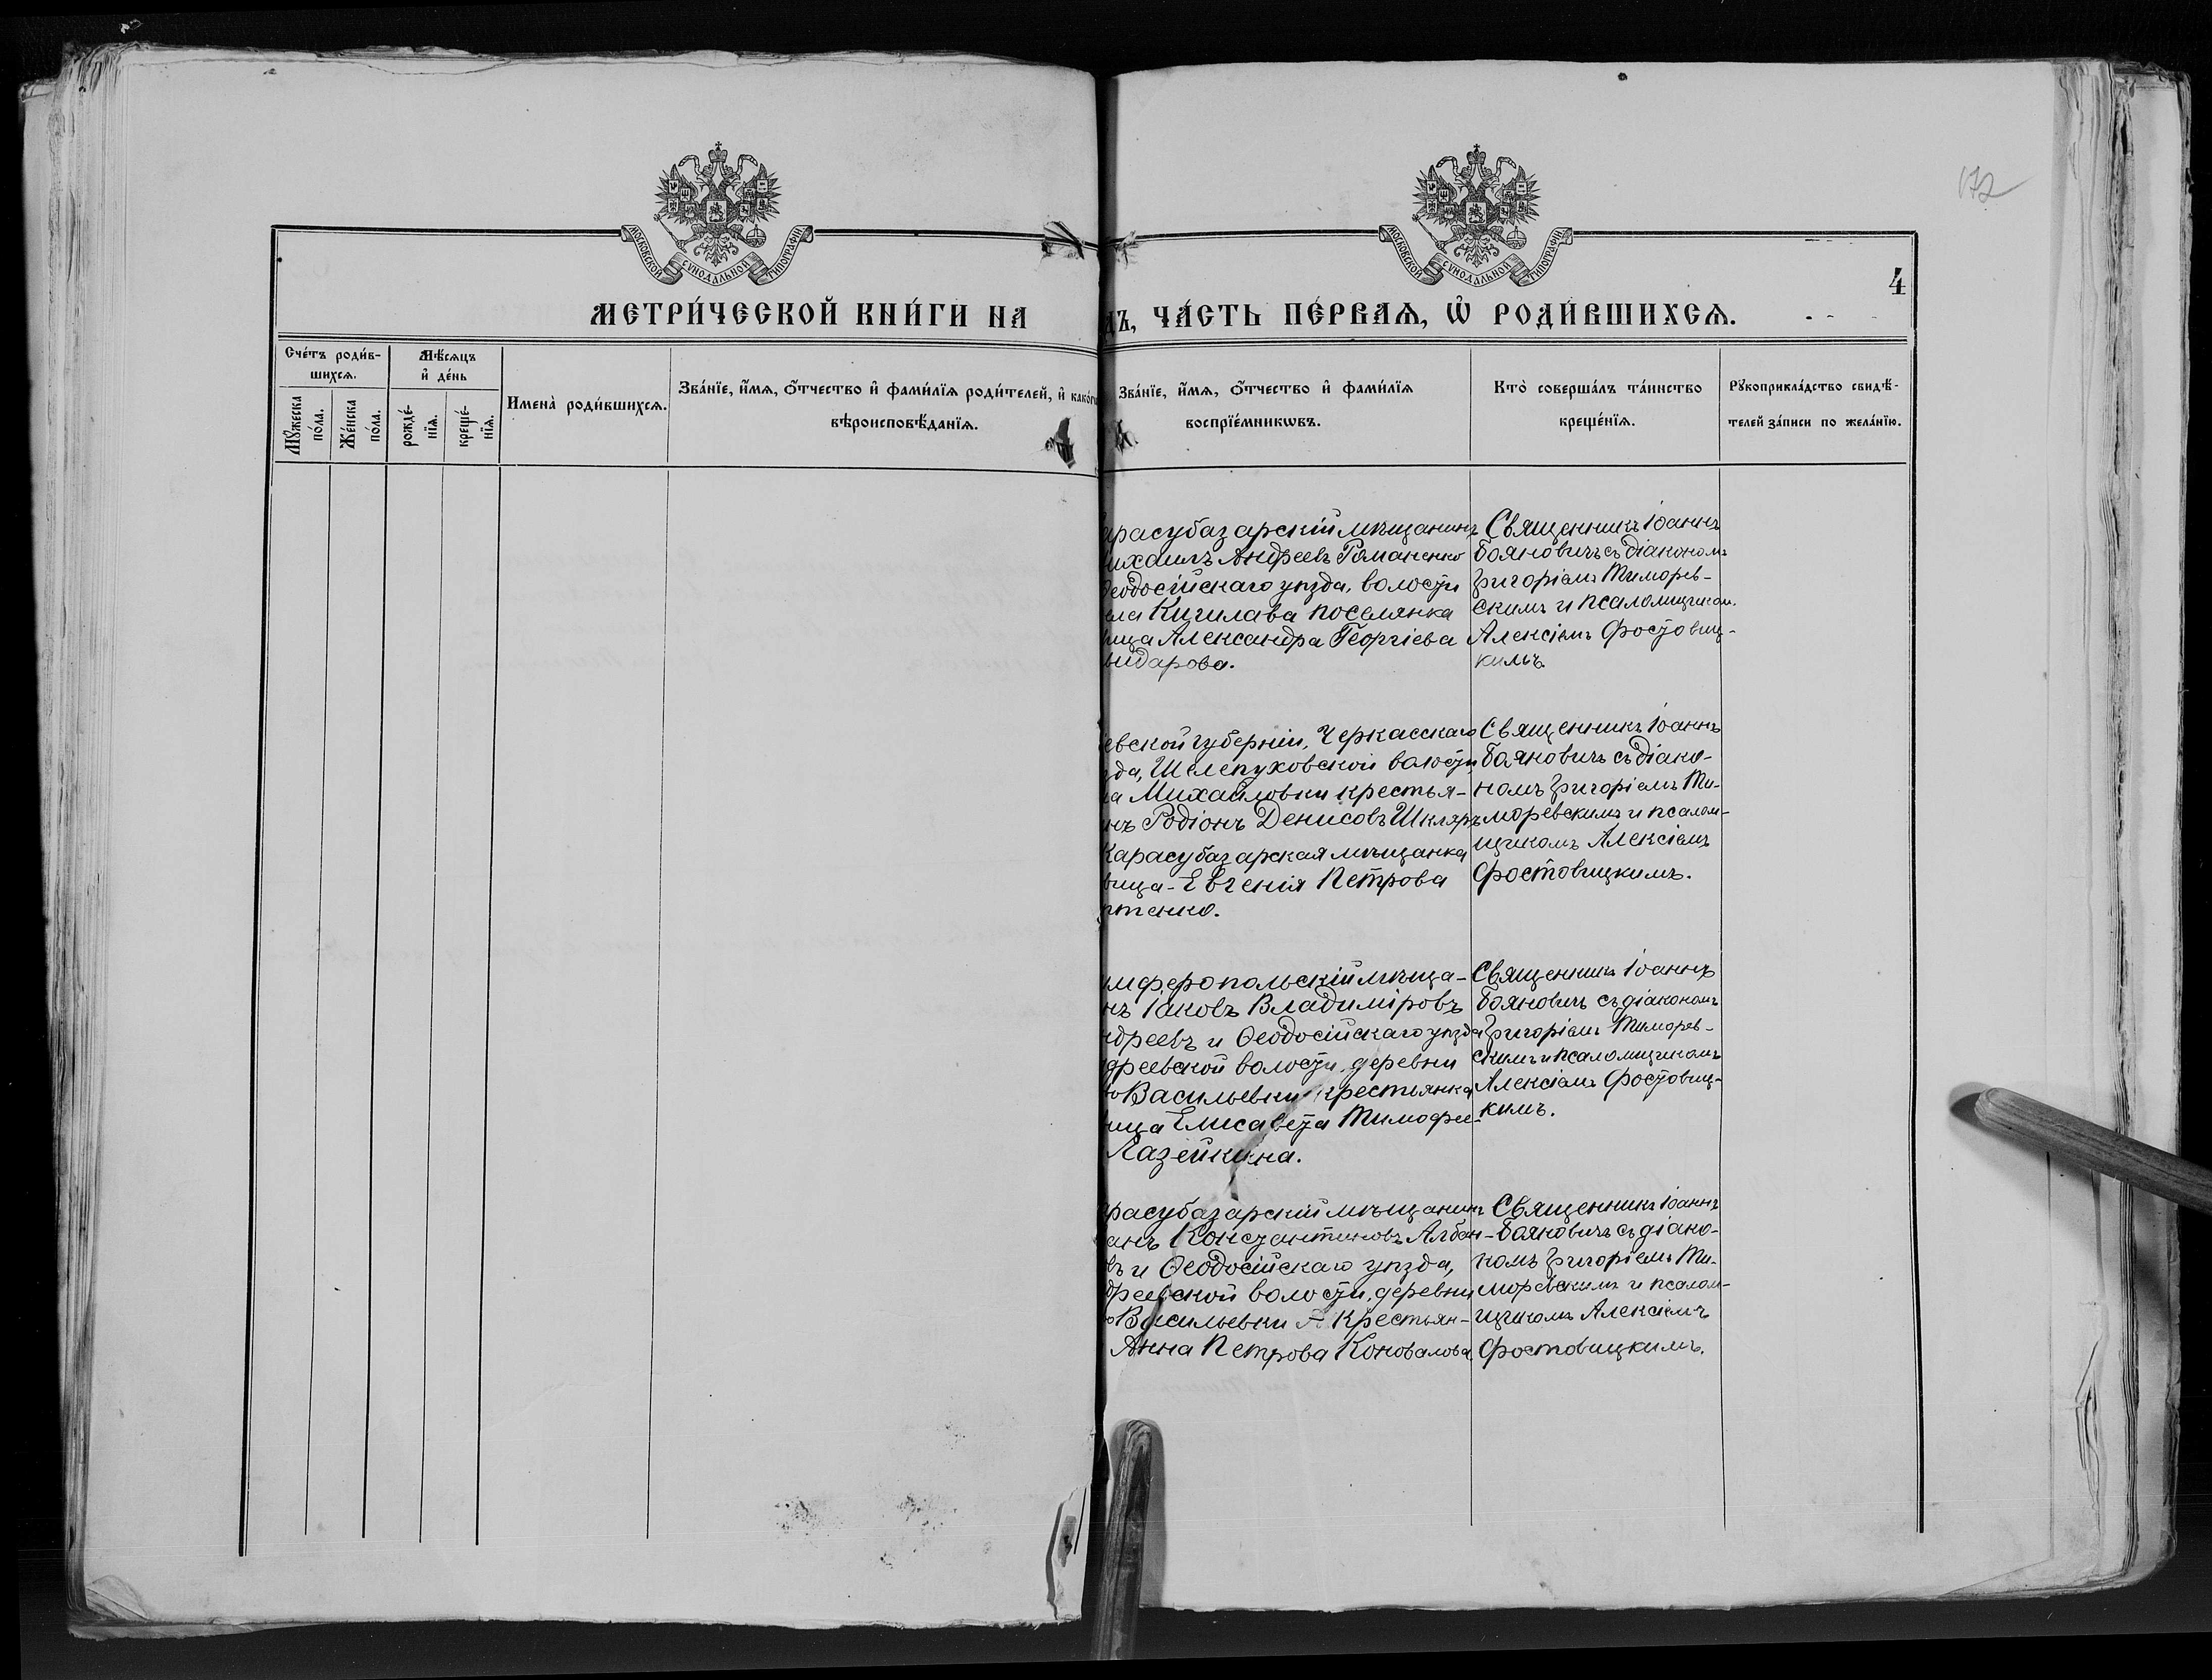 172
МОСКОВСКОЙ СѴНОДАЛЬНОЙ ТИПОГРАФІИ
МЕТРИ́ЧЕСКОЙ КНИ́ГИ НА
Сче́тъ роди́в-
шихсѧ.
Мѣ́сѧцъ
и҆ де́нь
Мꙋ́жеска
по́ла.
Же́нска
по́ла.
рожде́-
нїѧ.
креще́-
нїѧ.
Имена̀ роди́вшихсѧ.
Зва́нїе, и҆́мѧ, ѻ҆́тчество и҆ фами́лїѧ роди́телей, и҆ како́гѡ
вѣроисповѣ́данїѧ.
МОСКОВСКОЙ СѴНОДАЛЬНОЙ ТИПОГРАФІИ
4
дъ, ЧА́СТЬ ПЕ́РВАѦ, Ѡ҆ РОДИ́ВШИХСѦ.
Зва́нїе, и҆́мѧ, ѻ҆́тчество и҆ фами́лїѧ
воспрїе́мникѡвъ.
Кто̀ соверша́лъ та́инство
креще́нїѧ.
Рꙋкоприкла́дство свидѣ́-
телей за́писи по жела́нїю.
арасубазарскій мѣщанинъ
ихаилъ Андреевъ Романенко
Ѳеодосійскаго уѣзда, волости
ела Кишлава поселянка
вица Александра Георгіева
ындарова.
Священникъ Іоаннъ
Бояновичъ съ діакономъ
Григоріемъ Тиморев-
скимъ и псаломщиком.
Алексіемъ Фостовиц-
кимъ.
іевской губерніи, Черкасскаго
зда, Шелепуховской волости,
ла Михайловки крестья-
инъ Родіонъ Денисовъ Шкляръ
Карасубазарская мѣщанка
вица - Евгенія Петрова
ртенко.
Священникъ Іоаннъ
Бояновичъ съ діако-
номъ Григоріемъ Ти-
моревскимъ и псалом-
щикомъ Алексіемъ
Фостовицкимъ.
имферопольскій мѣща-
нъ Іаковъ Владиміровъ
ндреевъ и Ѳеодосійскаго уѣзда
дреевской волости, деревни
Васильевки крестьянка
вица Елисавета Тимофее-
Лазейкина.
Священникъ Іоаннъ
Бояновичъ съ діакономъ
Григоріемъ Тиморев-
скимъ и псаломщикомъ
Алексіемъ Фостовиц-
кимъ.
расубазарскій мѣщанинъ
анъ Константиновъ Албан-
въ и Ѳеодосійскаго уѣзда,
дреевской волости, деревни
Васильевки крестьян-
Анна Петрова Коновалова
Священникъ Іоаннъ
Бояновичъ съ діако-
номъ Григоріемъ Ти-
моревскимъ и псалом-
щикомъ Алексіемъ
Фостовицкимъ.